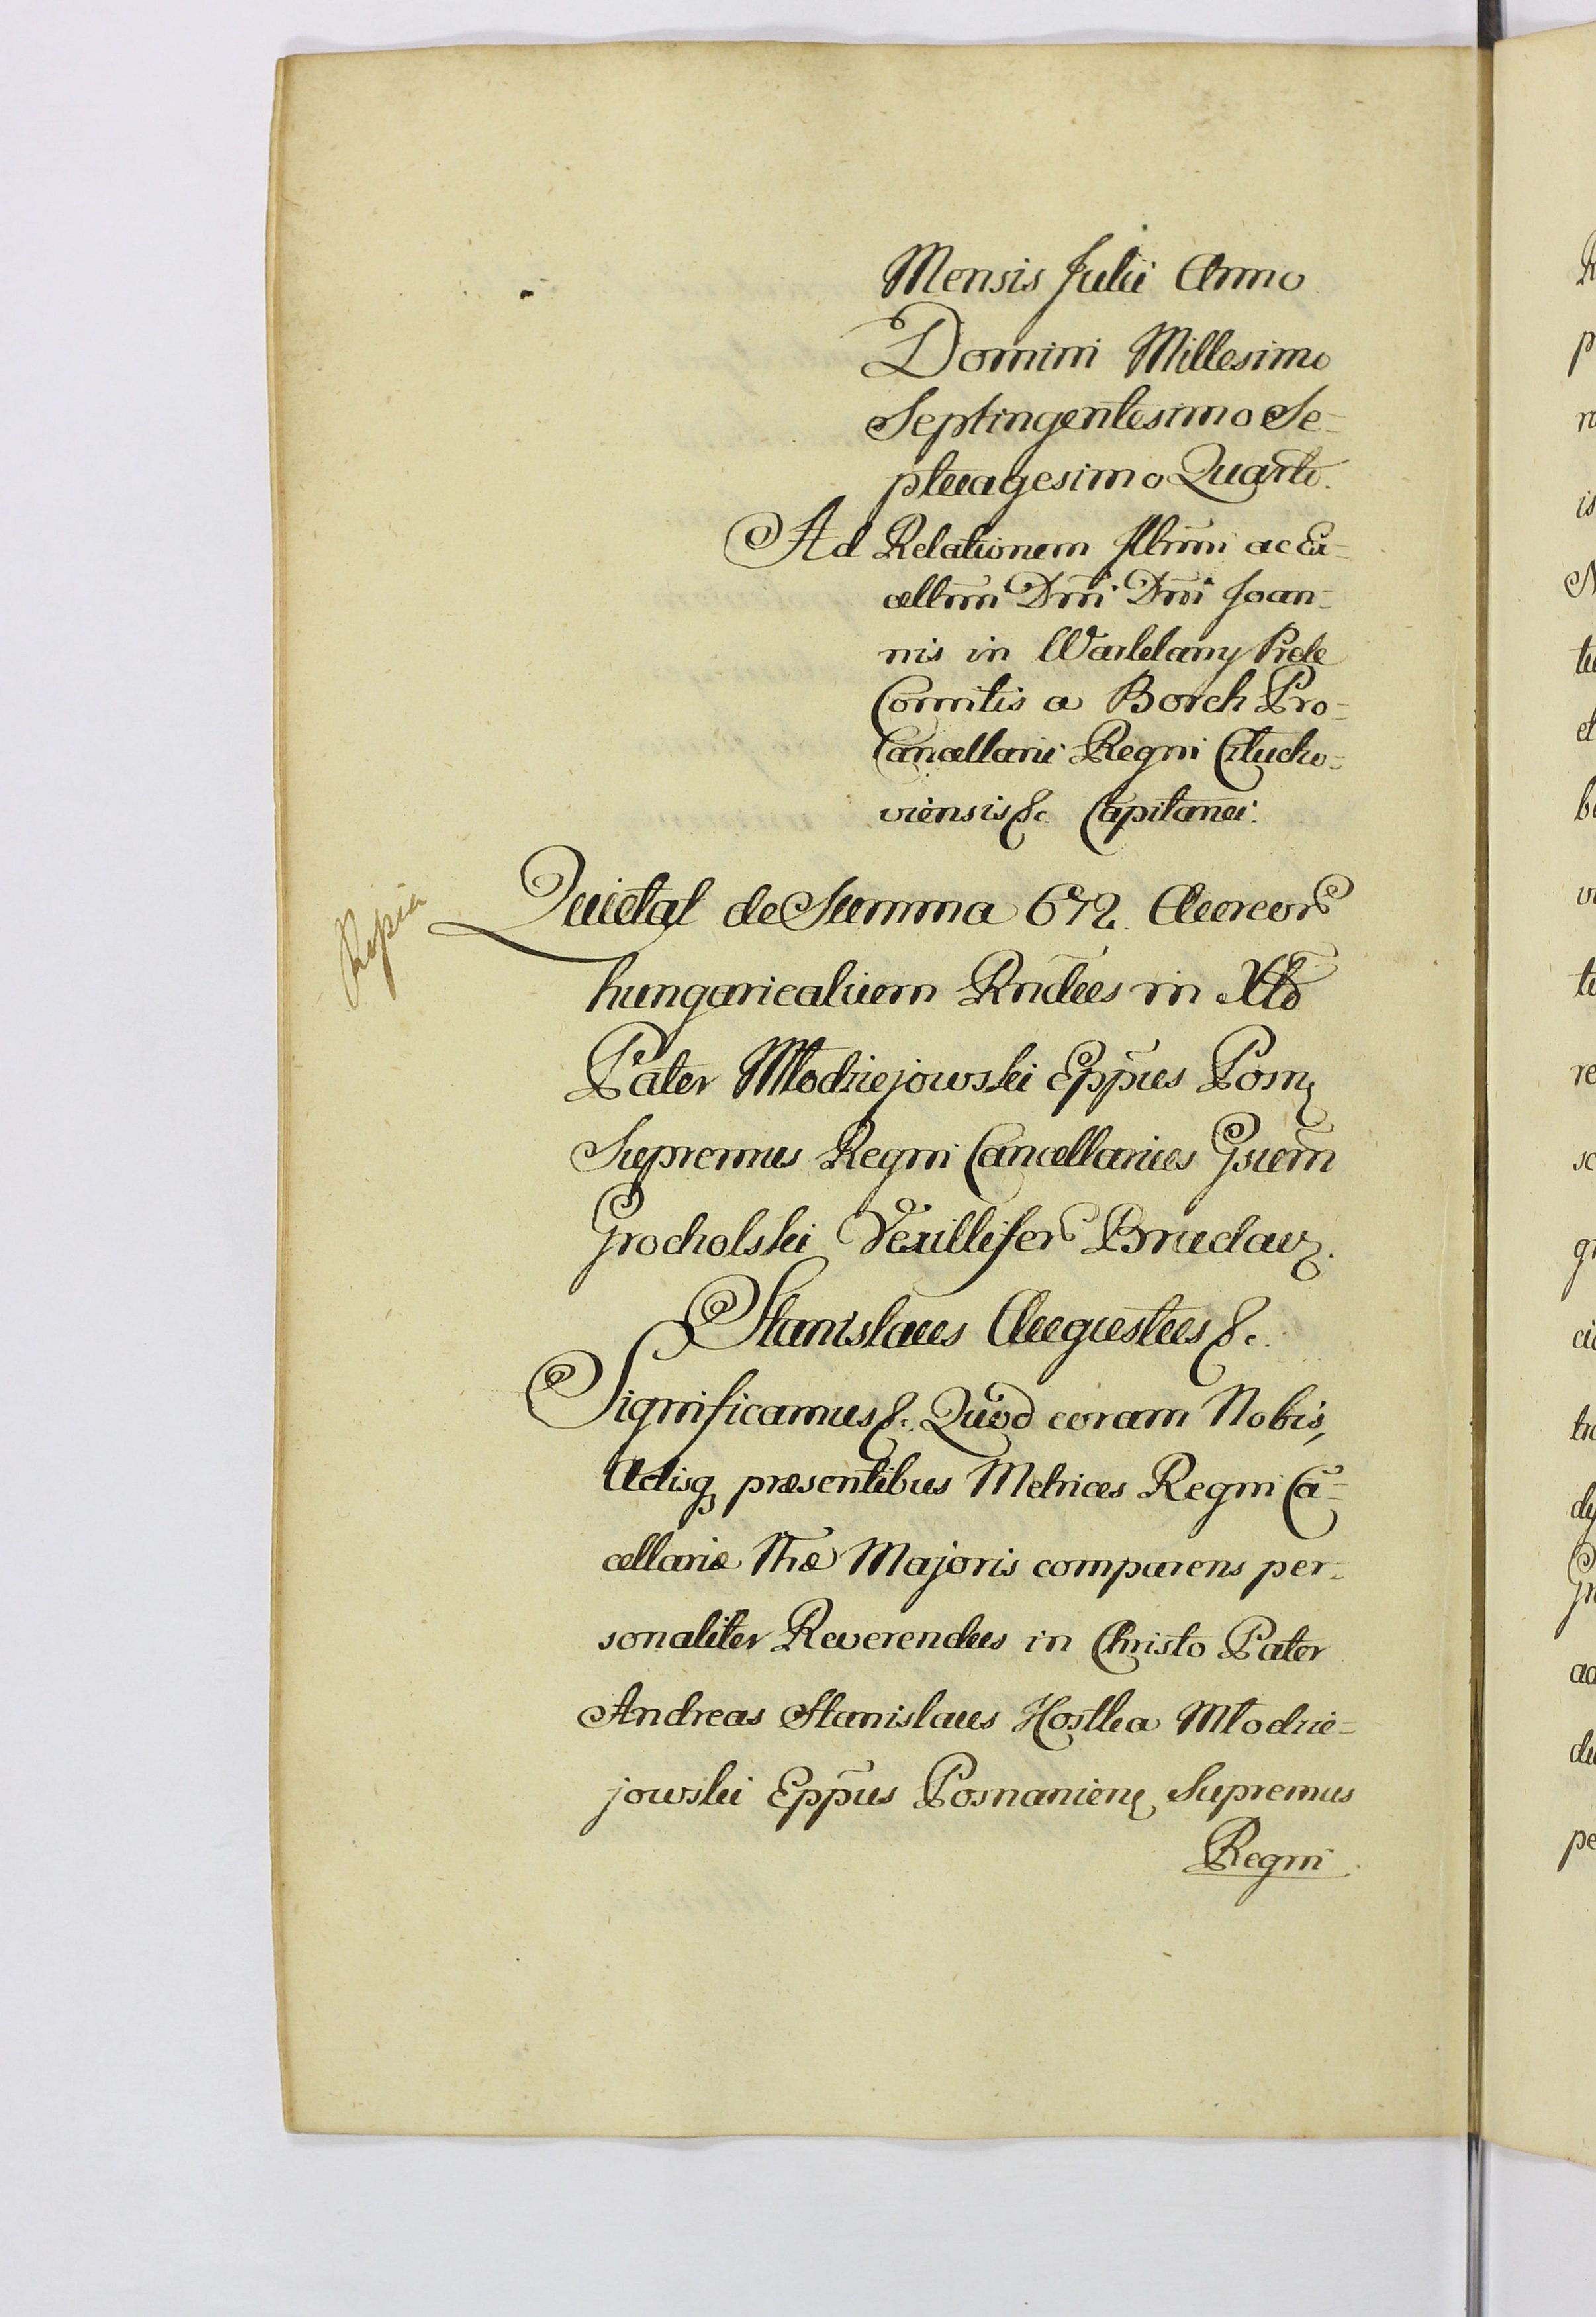 Mensis Julii Anno
Domini Millesimo
Septingentesimo Se=
ptuagesimo Quarto.
Ad Relationem Illrmi ac Ex=
cellmi Dni Dni Joan=
nis in Warklany Prele
Comitis a Borch Pro=
Cancellarii Regni Clucho=
viensis &c. Capitanei.
Quietat de Summa 672. Aureor
hungaricalium Rndus in Xto
Pater Młodziejowski Eppus Posn
Supremus Regni Cancellarius Gsum
Grocholski Vexillifer Braclav.
Stanislaus Augustus &c.
Significamus &c. Quod coram Nobis,
Actisq præsentibus Metrices Regni Cã=
cellariæ Nræ Majoris comparens per=
sonaliter Reverendus in Christo Pater
Andreas Stanislaus Kostka Młodzie=
jowski Eppus Posnanien Supremus
Regni